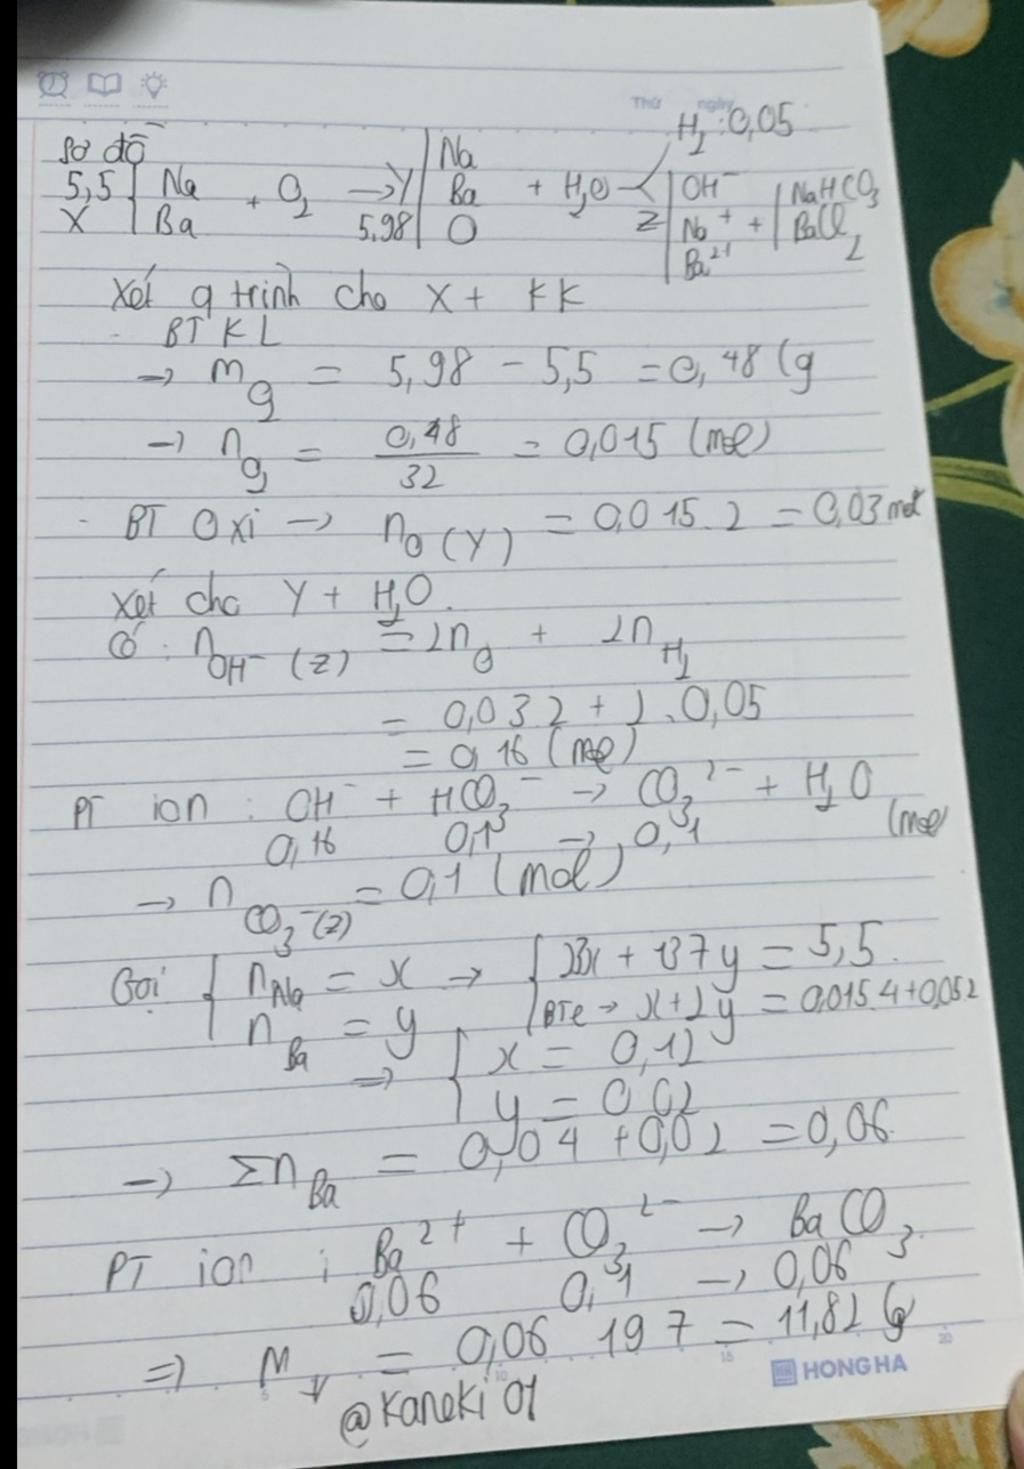 Thứ ngày
Sơ đồ
H2 : 0,05
5,5 | Na + O2 → Y | Na + H2O < | OH- | NaHCO3
X | Ba 5,98 | Ba Z | Na+ + | BaCl2
O Ba2+
Xét q trình cho X + KK
- BT KL
→ mO2 = 5,98 - 5,5 = 0,48 (g
→ nO2 = 0,48/32 = 0,015 (mol)
- BT Oxi → nO (Y) = 0,015.2 = 0,03 mol
Xét cho Y + H2O.
Có : nOH- (Z) = 2nO + 2nH2
= 0,03 2 + 2.0,05
= 0,16 (mol)
PT ion : OH- + HCO3- → CO3 2- + H2O
0,16 0,1 → 0,1 (mol)
→ nCO3-(Z) = 0,1 (mol)
Gọi { nNa = x → { 23x + 137y = 5,5.
nBa = y BTe → x+2y = 0,015.4+0,05 2
⇒ { x = 0,12
y = 0,02
→ ΣnBa = 0,04 + 0,02 = 0,06.
PT ion : Ba2+ + CO3 2- → BaCO3
0,06 0,1 → 0,06
⇒ m↓ = 0,06 197 = 11,82 (g
@Kaneki 01
HONG HA